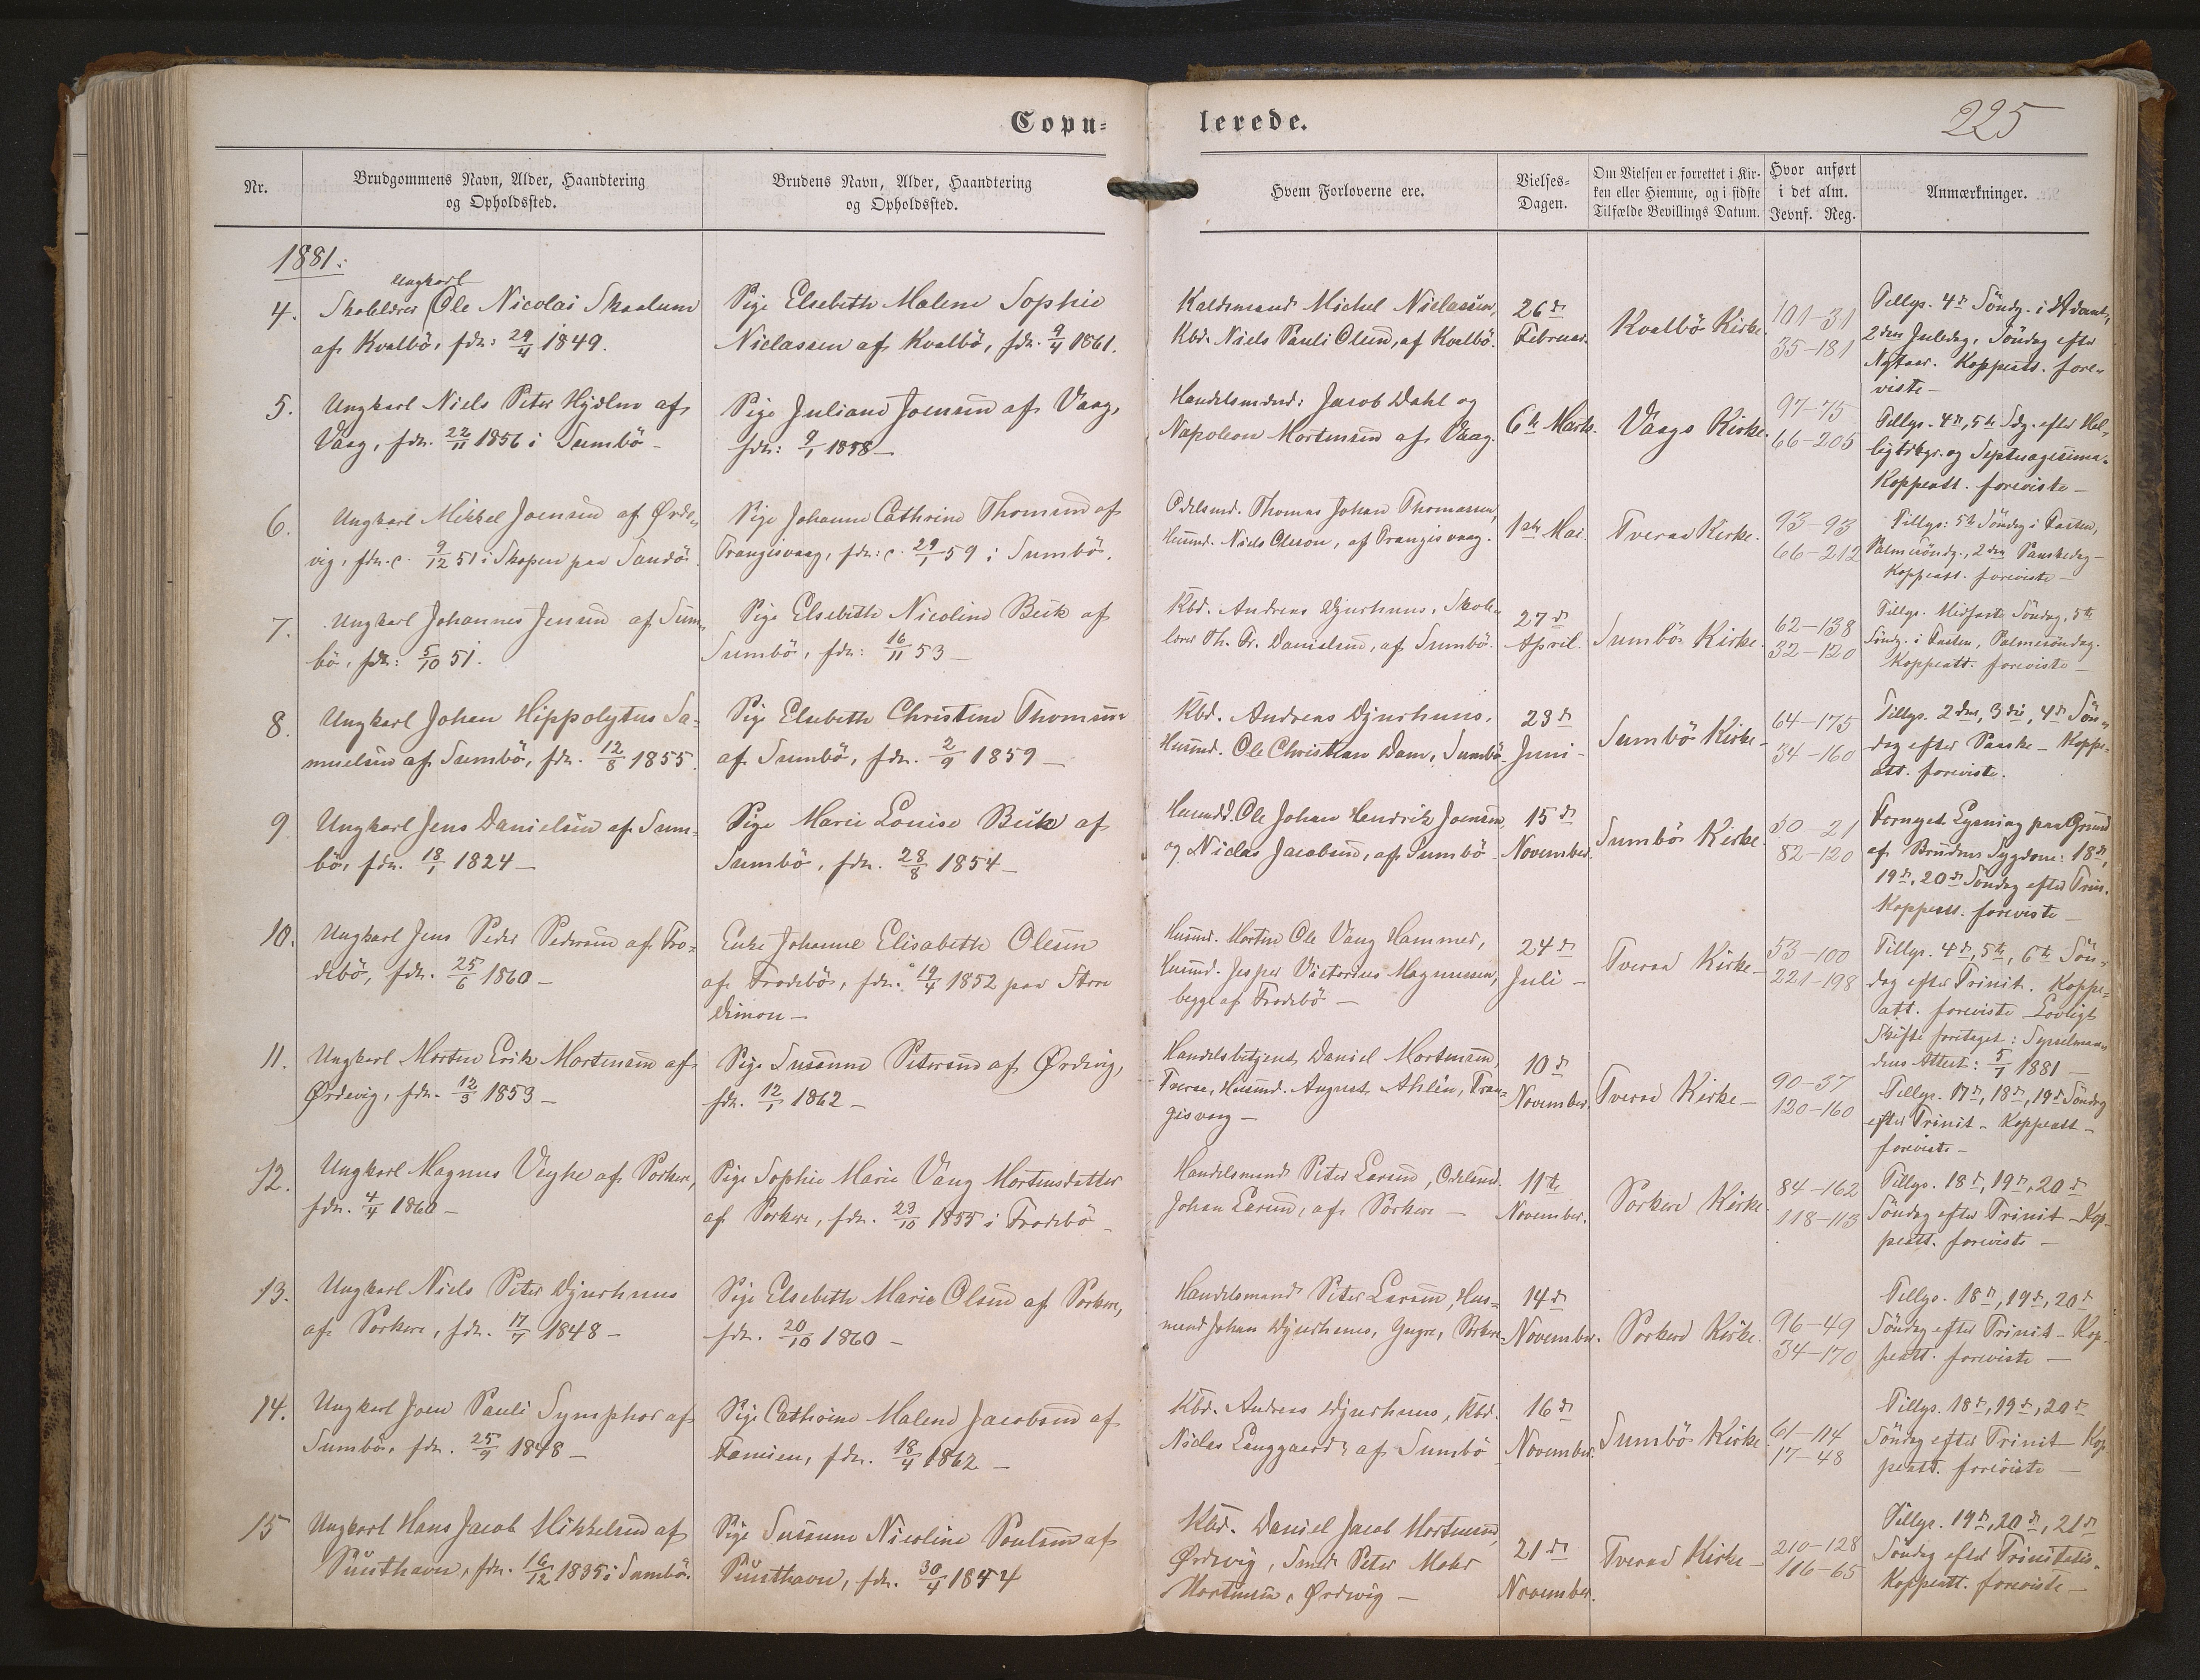 Copu- lerede.
225
Nr.
Brudgommens Navn, Alder, Haandtering
og Opholdssted.
Brudens Navn, Alder, Haandtering
og Opholdssted.
Hvem Forloverne ere.
Vielses-
Dagen.
Om Vielsen er forrettet i Kir-
ken eller Hiemme, og i sidste
Tilfælde Bevillings Datum.
Hvor anført
i det alm.
Jevnf. Reg.
Anmærkninger.
1881:
4.
Ungkarl
Skolelærer Ole Nicolai Skaalum
af Kvalbö, fdr: 29/4 1849.
Pige Elsebeth Malene Sophie
Niclassen af Kvalbö, fdr. 9/4 1861.
Michel Niclassen,
Kbd. Niels Pauli Olsen, af Kvalbö.
26de
Februar.
Kvalbö Kirke.
101-31
35-181
Tillys. 4de Söndg. i Advent,
2den Juledag, Söndag efter
Nytaar. Koppeatt. fore-
viste-
5.
Ungkarl Niels Peter Hjölm af
Vaag, fdr. 22/11 1856 i Sumbö-
Pige Juliane Joensen af Vaag,
fdr: 9/1 1858-
Handelsmænd: Jacob Dahl og
Napoleon Mortensen af Vaag.
6te Marts.
Vaags Kirke.
97-75
66-205
Tillys. 4de, 5te Sdg. efter Hel-
ligtrkgr. og Septuagesima.
Koppeatt. foreviste-
6.
Ungkarl Mikkel Joensen af Örde-
vig, fdr. c. 9/12 51 i Skopen paa Sandö.
Pige Johanne Cathrine Thomsen af
Trangisvaag, fdr: c. 29/1 59 i Sumbö.
Odelsmd. Thomas Johan Thomassen,
Husmd. Niels Olsson, af Trangisvaag.
1ste Mai.
Tveraa Kirke.
93-93
66-212
Tillys: 5te Söndag i Fasten,
Palmesöndg., 2den Paaskedag-
Koppeatt. foreviste-
7.
Ungkarl Johannes Jensen af Sum-
bö, fdr: 5/10 51.
Pige Elsebeth Nicoline Bech af
Sumbö, fdr: 16/11 53-
Kbd. Andreas Djurhuus, Skole-
lærer Th. Fr. Danielsen, af Sumbö.
27de
April.
Sumbö Kirke.
62-138
32-120
Tillys. Midfaste Söndag, 5te
Söndg. i Fasten, Palmesöndag.
Koppeatt. foreviste-
8.
Ungkarl Johan Hippolytus Sa-
muelsen af Sumbö, fdr. 12/8 1855.
Pige Elsebeth Christine Thomsen
af Sumbö, fdr. 2/9 1859-
Kbd. Andreas Djurhuus,
Husmd. Ole Christian Dam, Sumbö.
23de
Juni-
Sumbö Kirke-
64-175
34-160
Tillys. 2den, 3die, 4de Sön-
dag efter Paaske- Koppe-
att. foreviste.
9
Ungkarl Jens Danielsen af Sum-
bö, fdr. 18/1 1824-
Pige Marie Louise Beck af
Sumbö, fdr. 28/8 1854-
Husmdd. Ole Johan Hendrik Joensen,
og Niclas Jacobsen, af Sumbö
15de
November.
Sumbö Kirke.
50-21
82-120
Fornyet Lysning paa Grund
af Brudens Sygdom: 18de,
19de, 20de Söndag efter Trin.
Koppeatt. foreviste-
10.
Ungkarl Jens Peder Pedersen af Fro-
debö, fdr. 25/6 1860-
Enke Johanne Elisabeth Olsen
af Frodebö, fdr. 19/4 1852 paa Store
Dimon-
Husmd. Morten Ole Vang Hammer,
Husmd. Jesper Victorius Magnussen,
begge af Frodebö-
24de
Juli-
Tveraa Kirke-
53-100
221-198
Tillys. 4de, 5te, 6te Sön-
dag efter Trinit. Koppe-
att. foreviste Lovligt
Skifte foretaget: Sysselman-
dens Attest: 5/1 1881-
11.
Ungkarl Morten Erik Mortensen af
Ördevig, fdr. 12/3 1853-
Pige Susanne Petersen af Ördevig,
fdr. 12/1 1862-
Handelsbetjent Daniel Mortensen,
Tveraa, Husmd. August Ahlén, Tran-
gisvaag-
10de
November.
Tveraa Kirke-
90-37
120-160
Tillys. 17de, 18de, 19de Söndag
efter Trinit- Koppeatt-
foreviste-
12.
Ungkarl Magnus Veyhe af Porkere,
fdr. 4/4 1860-
Pige Sophie Marie Vang Mortensdatter
af Porkere, fdr. 23/10 1855 i Frodebö-
Handelsmand Peter Larsen, Odelsmd.
Johan Larsen, af Porkere-
11te
November.
Porkere Kirke
84-162
118-113
Tillys. 18de, 19de, 20de
Söndag efter Trinit-Kop-
peatt. foreviste-
13.
Ungkarl Niels Peter Djurhuus
af Porkere, fdr. 17/7 1848-
Pige Elsebeth Marie Olsen af Porkere,
fdr. 20/10 1860-
Handelsmand Peter Larsen, Hus-
mand Johan Djurhuus, Porkere-
14de
November.
Porkere Kirke.
96-49
34-170
Tillys. 18de, 19de, 20de
Söndag efter Trinit- Kop-
peatt. foreviste-
14.
Ungkarl Joen Pauli Symphor af
Sumbö, fdr. 25/9 1848-
Pige Cathrine Malene Jacobsen af
Famien, fdr. 18/4 1862-
Kbd. Andreas Djurhuus, Kbd.
Niclas Langgaard, af Sumbö
16de
November.
Sumbö Kirke.
61-114
17-48
Tillys. 18de, 19de, 20de
Söndag efter Trinit- Kop
peatt. foreviste-
15
Ungkarl Hans Jacob Mikkelsen af
Punthavn, fdr. 16/12 1835 i Sumbö.
Pige Susanne Nicoline Poulsen af
Punthavn, fdr. 30/4 1844
Kbd. Daniel Jacob Mortensen,
Ördevig, Smed Peter Mohr
Mortensen, Ördvig-
21de
November.
Tveraa Kirke-
210-128
116-65
Tillys. 19de, 20de, 21de
Söndag efter Trinitatis-
Koppeatt. foreviste-